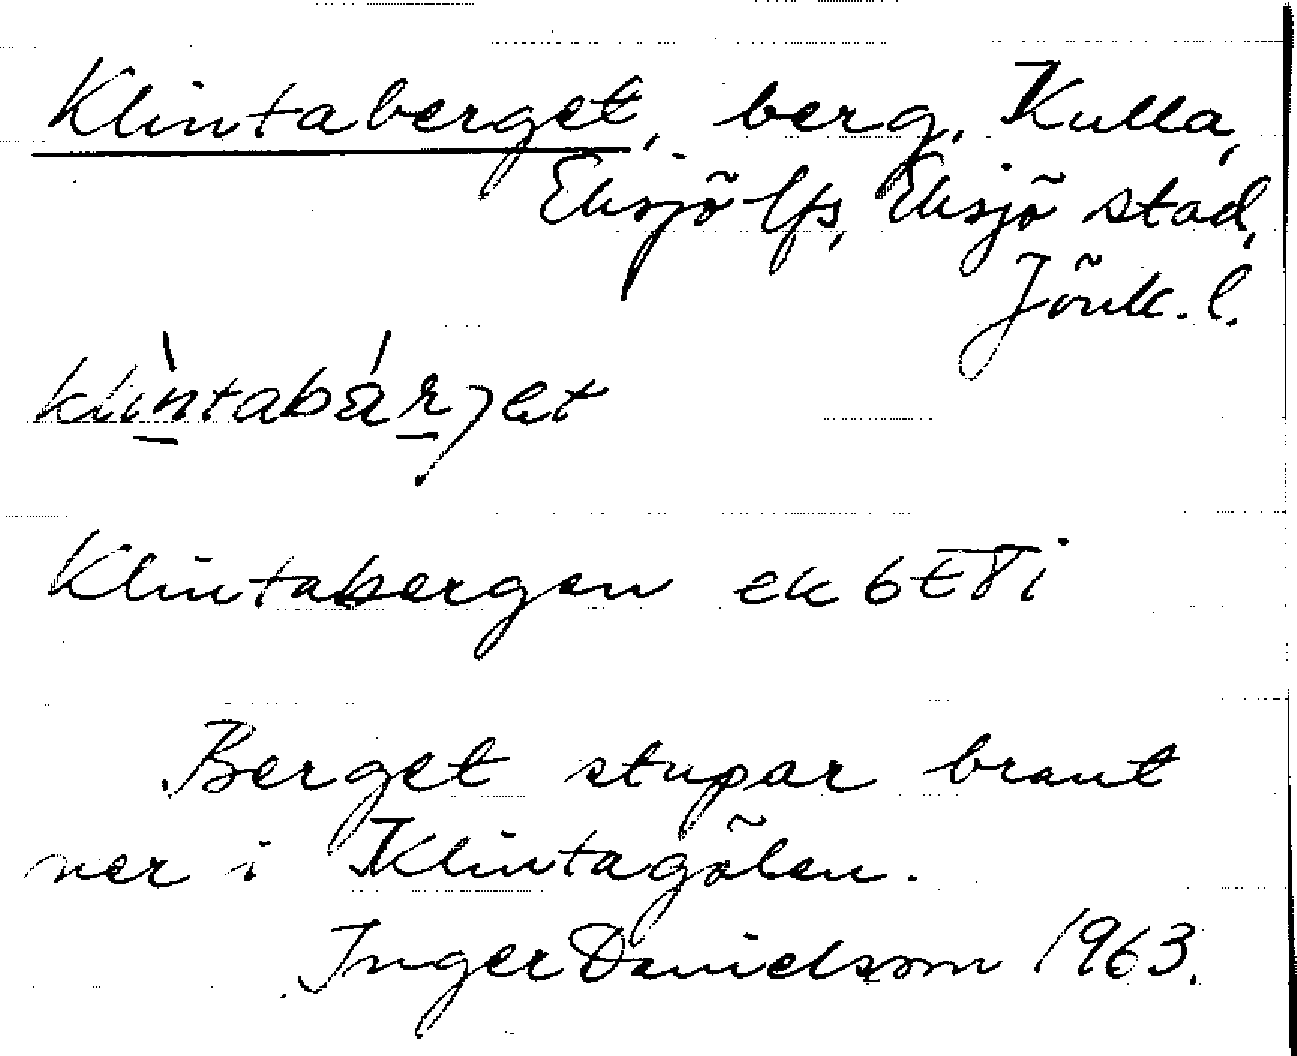 Klintaberget, berg, Kulla,
Eksjö lfs, Eksjö stad,
Jönk. l.
klìntabárjet
Klintabergen ek 6E8i
Berget stupar brant
ner i Klintagölen.
Inger Danielsson 1963.